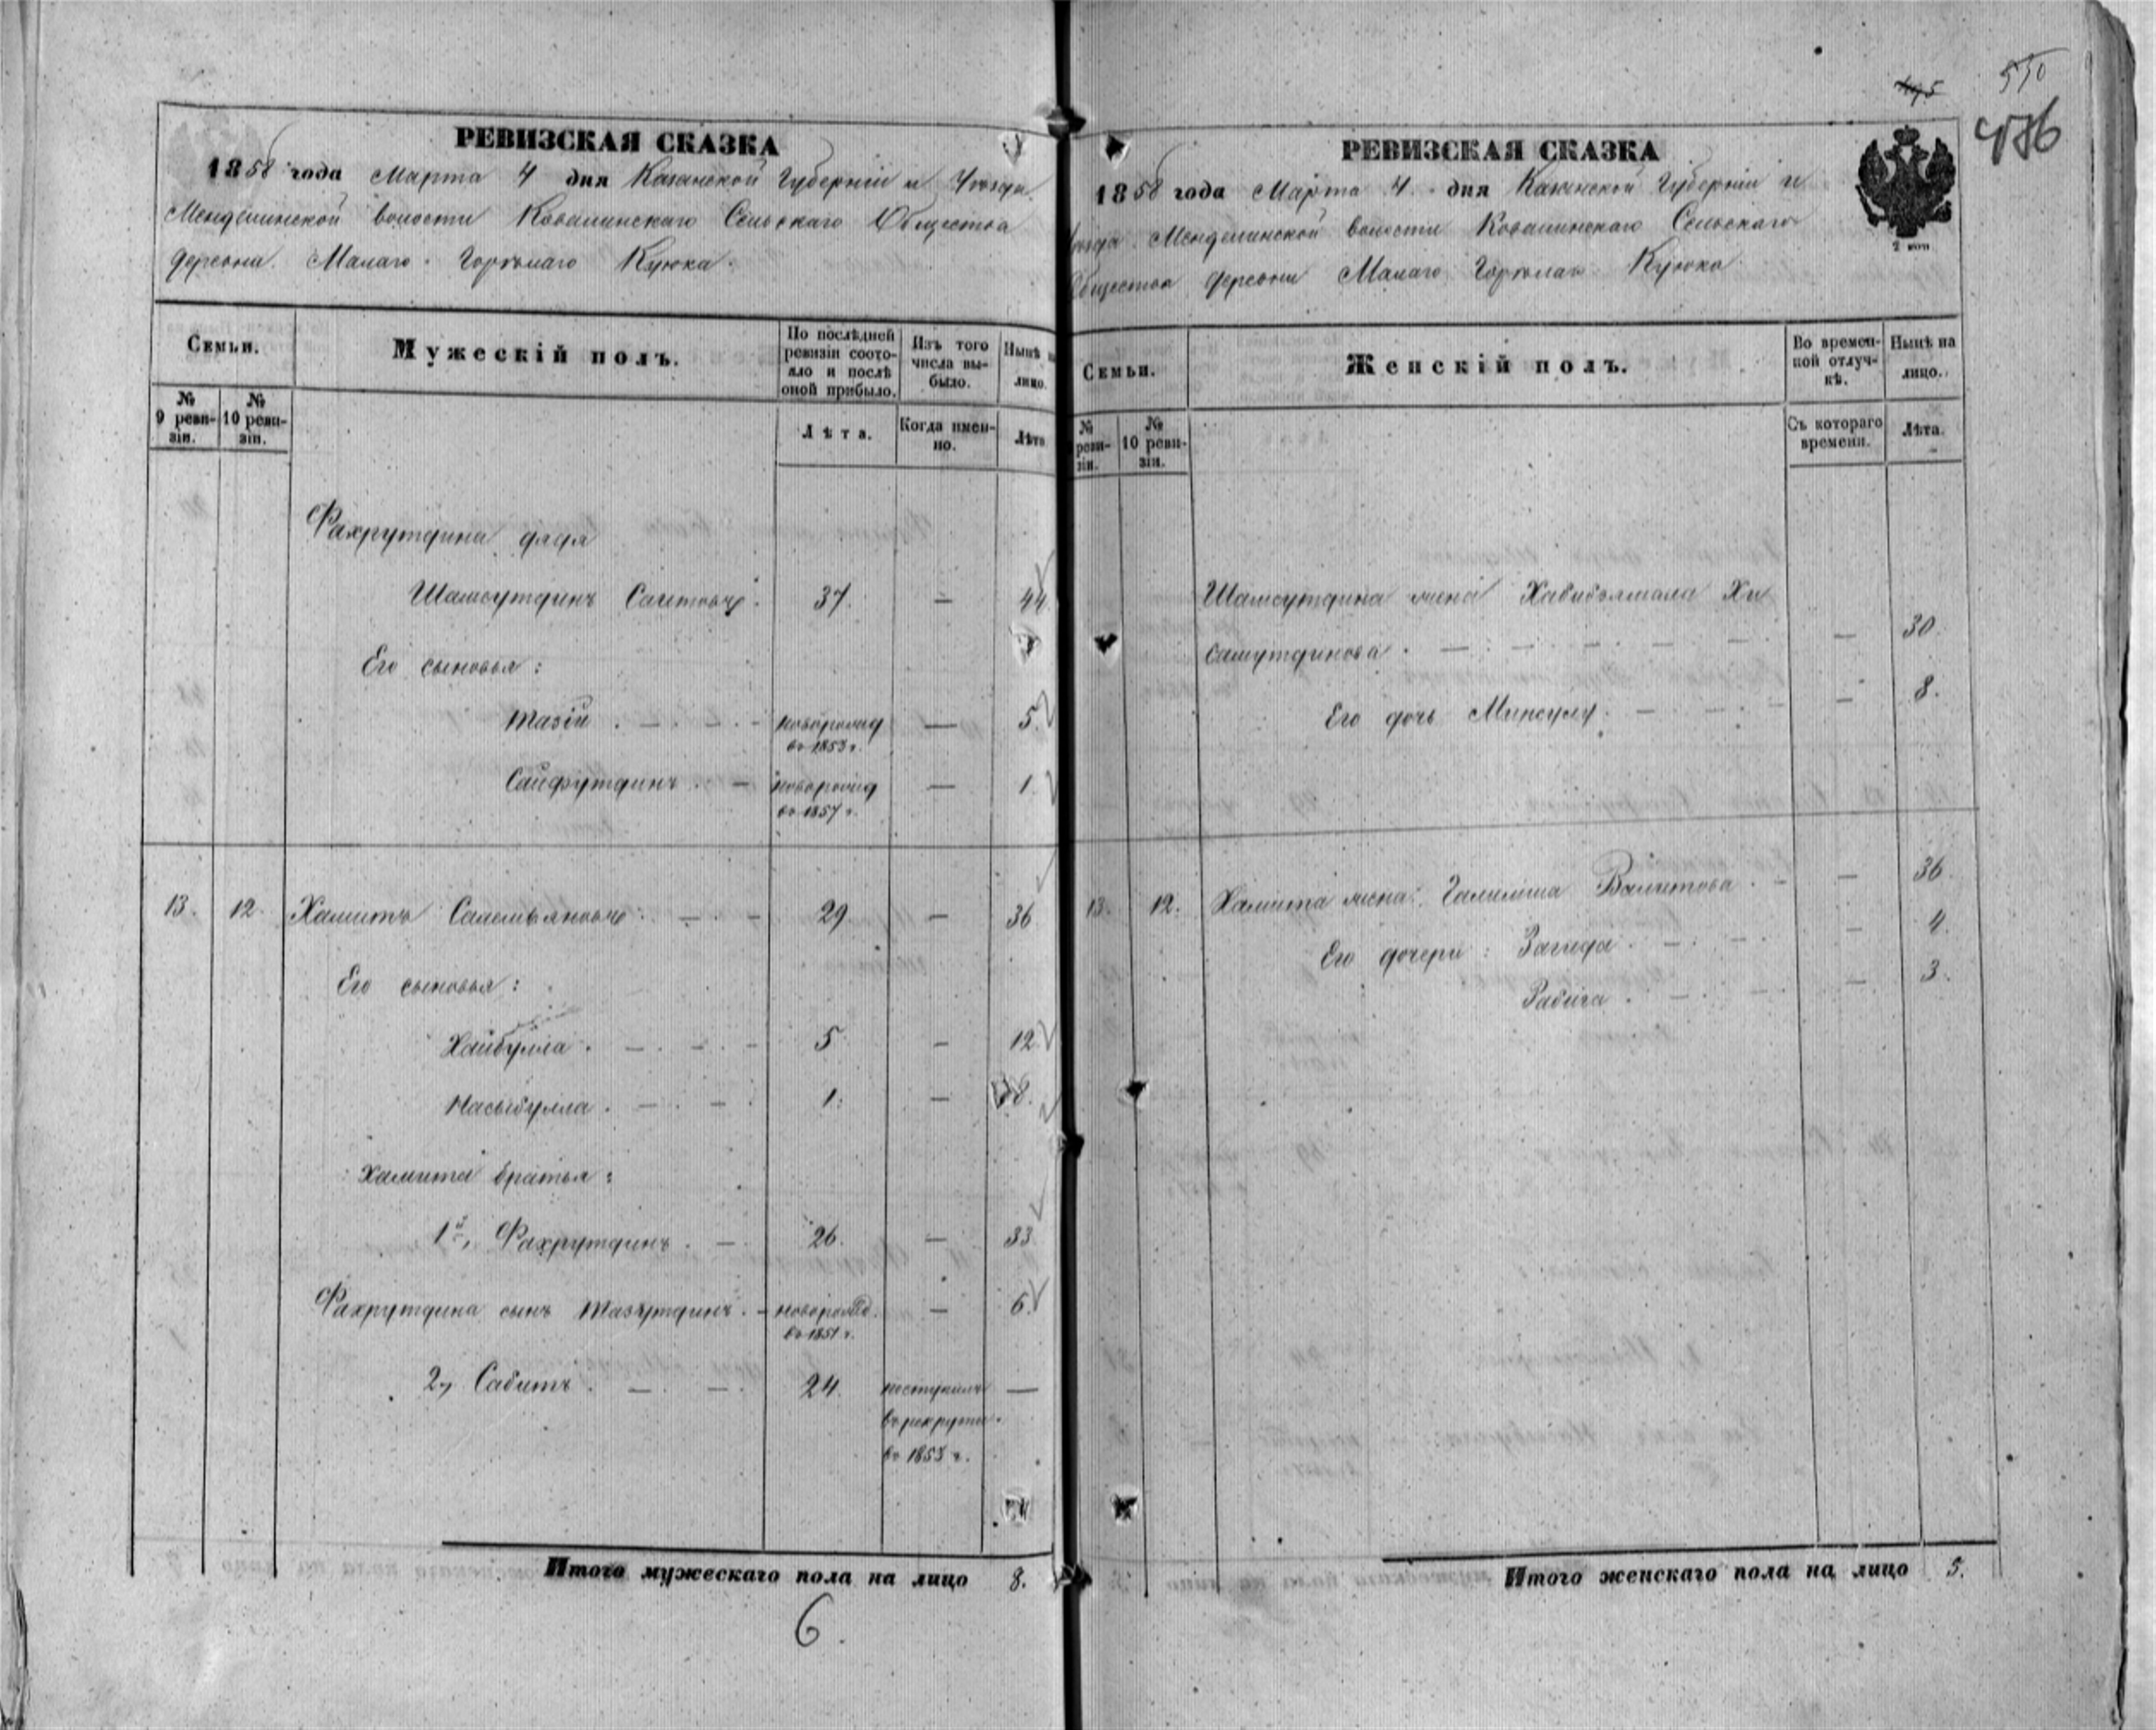 РЕВИЗСКАЯ СКАЗКА
1858 года Марта 4 дня Казанской Губерніи и Уѣзда
Менделинской волости Ковалинскаго Сельскаго Общества
деревни Малаго Горѣлаго Куюка.
Семьи.
Мужескій полъ.
По послѣдней ревизіи состояло и послѣ оной прибыло.
Изъ того числа выбыло.
Нынѣ на лицо.
№ 9 ревизіи.
№ 10 ревизіи.
Лѣта.
Когда именно.
Лѣта
Фахрутдина дядя
Шамсутдинъ Сагитовъ. 37. — 44.
Его сыновья:
Тазій . — . — . — новорожд — 5.
въ 1853 г.
Сайфутдинъ . — новорожд — 1.
въ 1857 г.
13. 12. Хамитъ Салемьяновъ: — . — 29. — 36
Его сыновья:
Хайбулла . — . — . — 5 — 12.
Насыбулла . — . — . 1. — 8.
Хамита братья:
1й, Фахрутдинъ . — 26. — 33
Фахрутдина сынъ Тазутдинъ. — новорожд. — 6.
въ 1851 г.
2, Сабитъ . — . — . 24. поступилъ —
въ рекруты.
въ 1853 г.
Итого мужескаго пола на лицо 8.
6.
510
486
РЕВИЗСКАЯ СКАЗКА
1858 года Марта 4 дня Казанской Губерніи и
Уѣзда Менделинской волости Ковалинскаго Сельскаго
Общества деревни Малаго Горѣлаго Куюка
2 коп
Семьи.
Женскій полъ.
Во временной отлучкѣ.
Нынѣ на лицо.
№ ревизіи.
№ 10 ревизіи.
Съ котораго времени.
Лѣта.
Шамсутдина жена Хабибъямала Хи
самутдинова . — . — . — . — — 30.
Его дочь Минсулу . — . — . — — 8.
13. 12. Хамита жена: Галиміа Валитова . — — 36.
Его дочери: Загида . — . — . — 4.
Рабига . — . — — 3.
Итого женскаго пола на лицо 5.